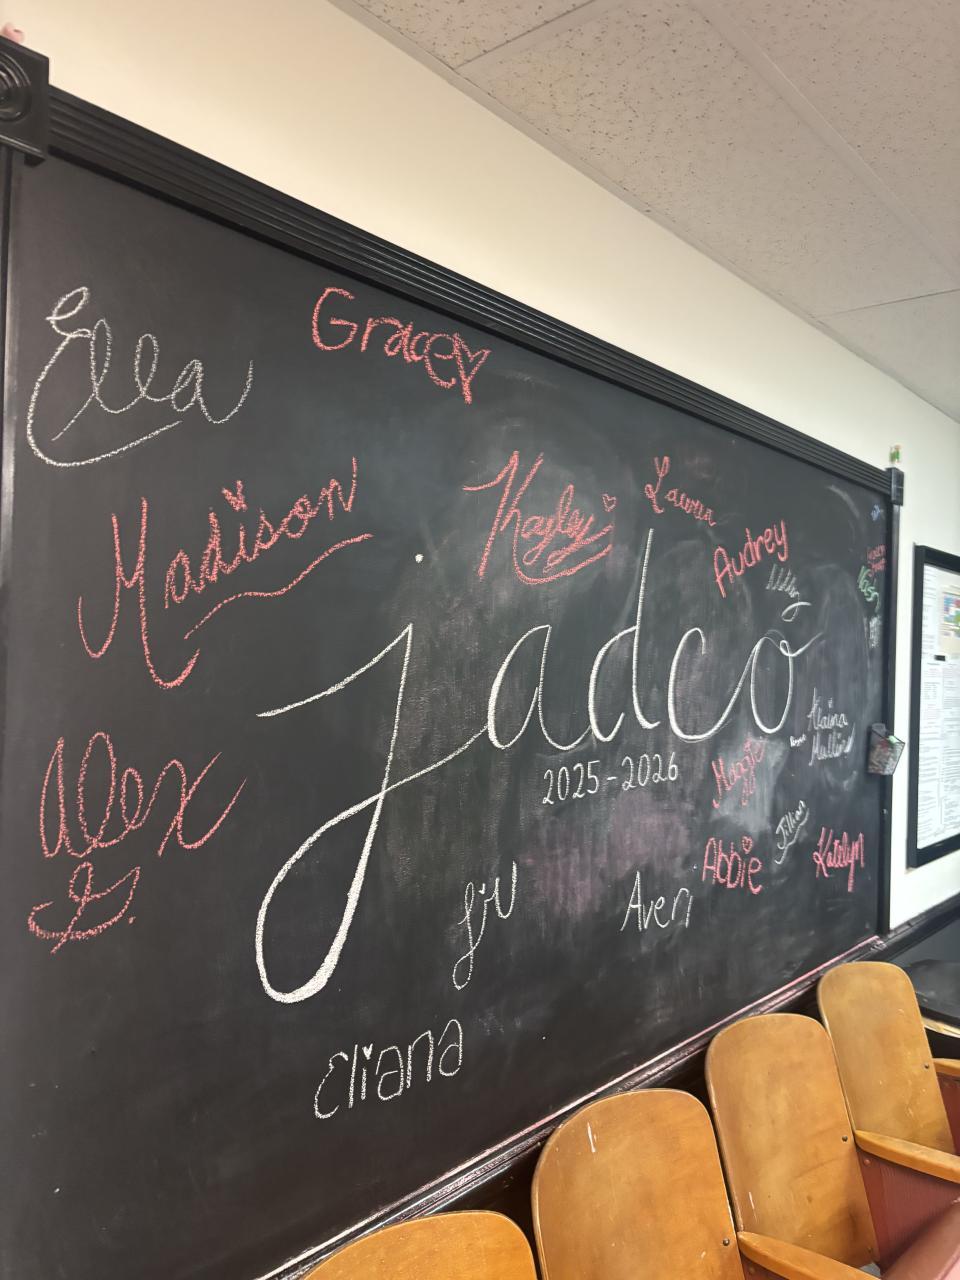 Ella
Gracey
Madison
Kayley
Lauren
Audrey
jadco
2025-2026
Alex
Alaina
Mullins
Maggie
Jillian
Abbie
Katelyn
Liv
Aven
Eliana